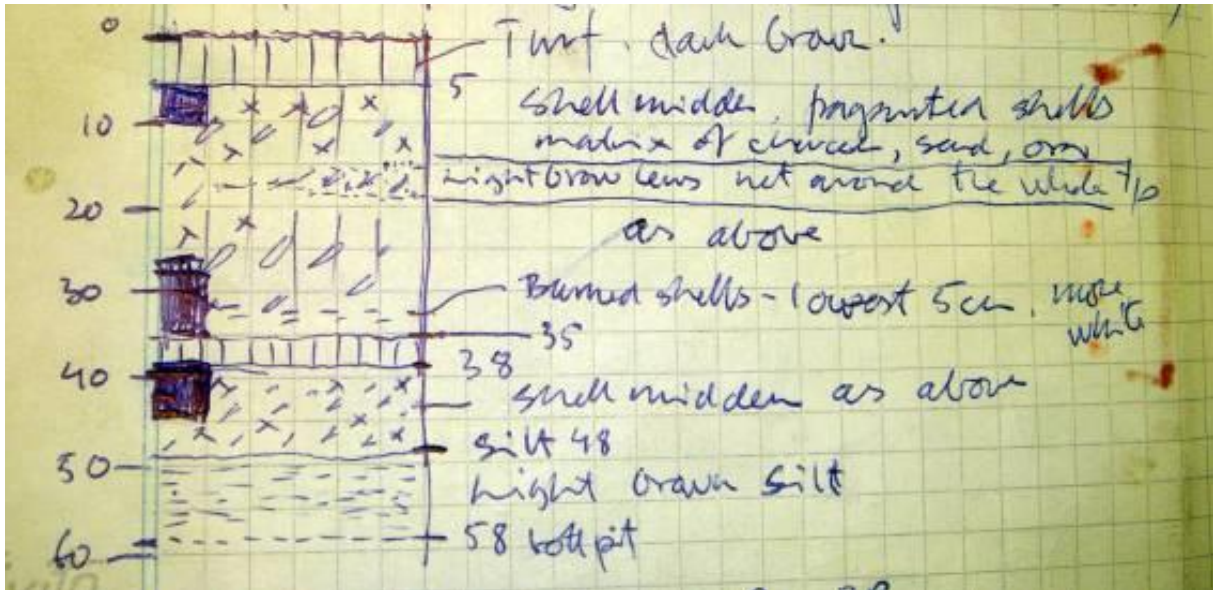 0
Turf. dark brown.
5
Shell midden, fragmented shells
10
matrix of charcoal, sand,
Light brown lens not around the whole
20
as above
30
Burned shells - lowest 5 cm. more
white
35
38
40
shell midden as above
silt 48
50
Light brown silt
58 pit
60